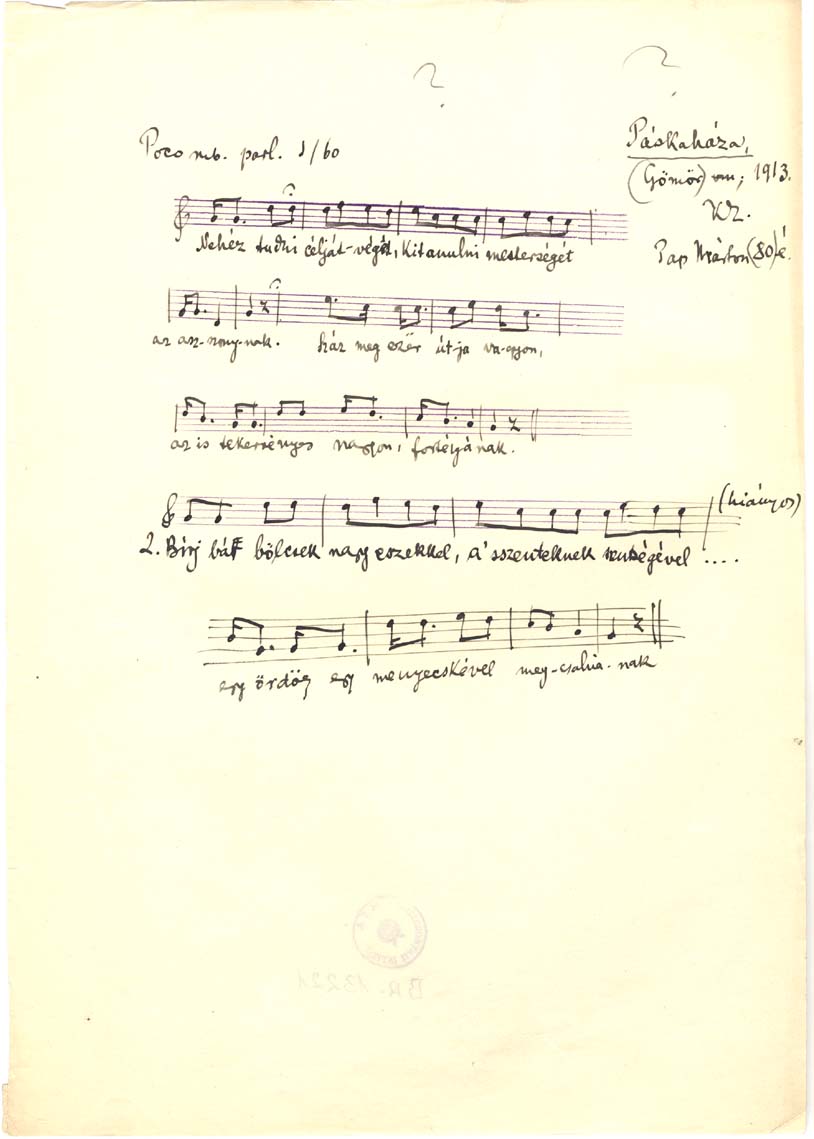 ? ?
Poco rub. parl. 1/60
Páskaháza,
(Gömör) vm; 1913.
Pap Márton (80) é.
Nehéz tudni célját-végét, kitanulni mesterségét
az asz-szony-nak. Száz meg ezër út-ja va-gyon,
az is tekervényes nagyon, fortéjának.
(hiányos)
2. Bírj bár bölcsek nagy eszekkel, a' sszenteknek szentségével ....
egy ördög egy menyecskével meg-csalná-nak
BR. 13221